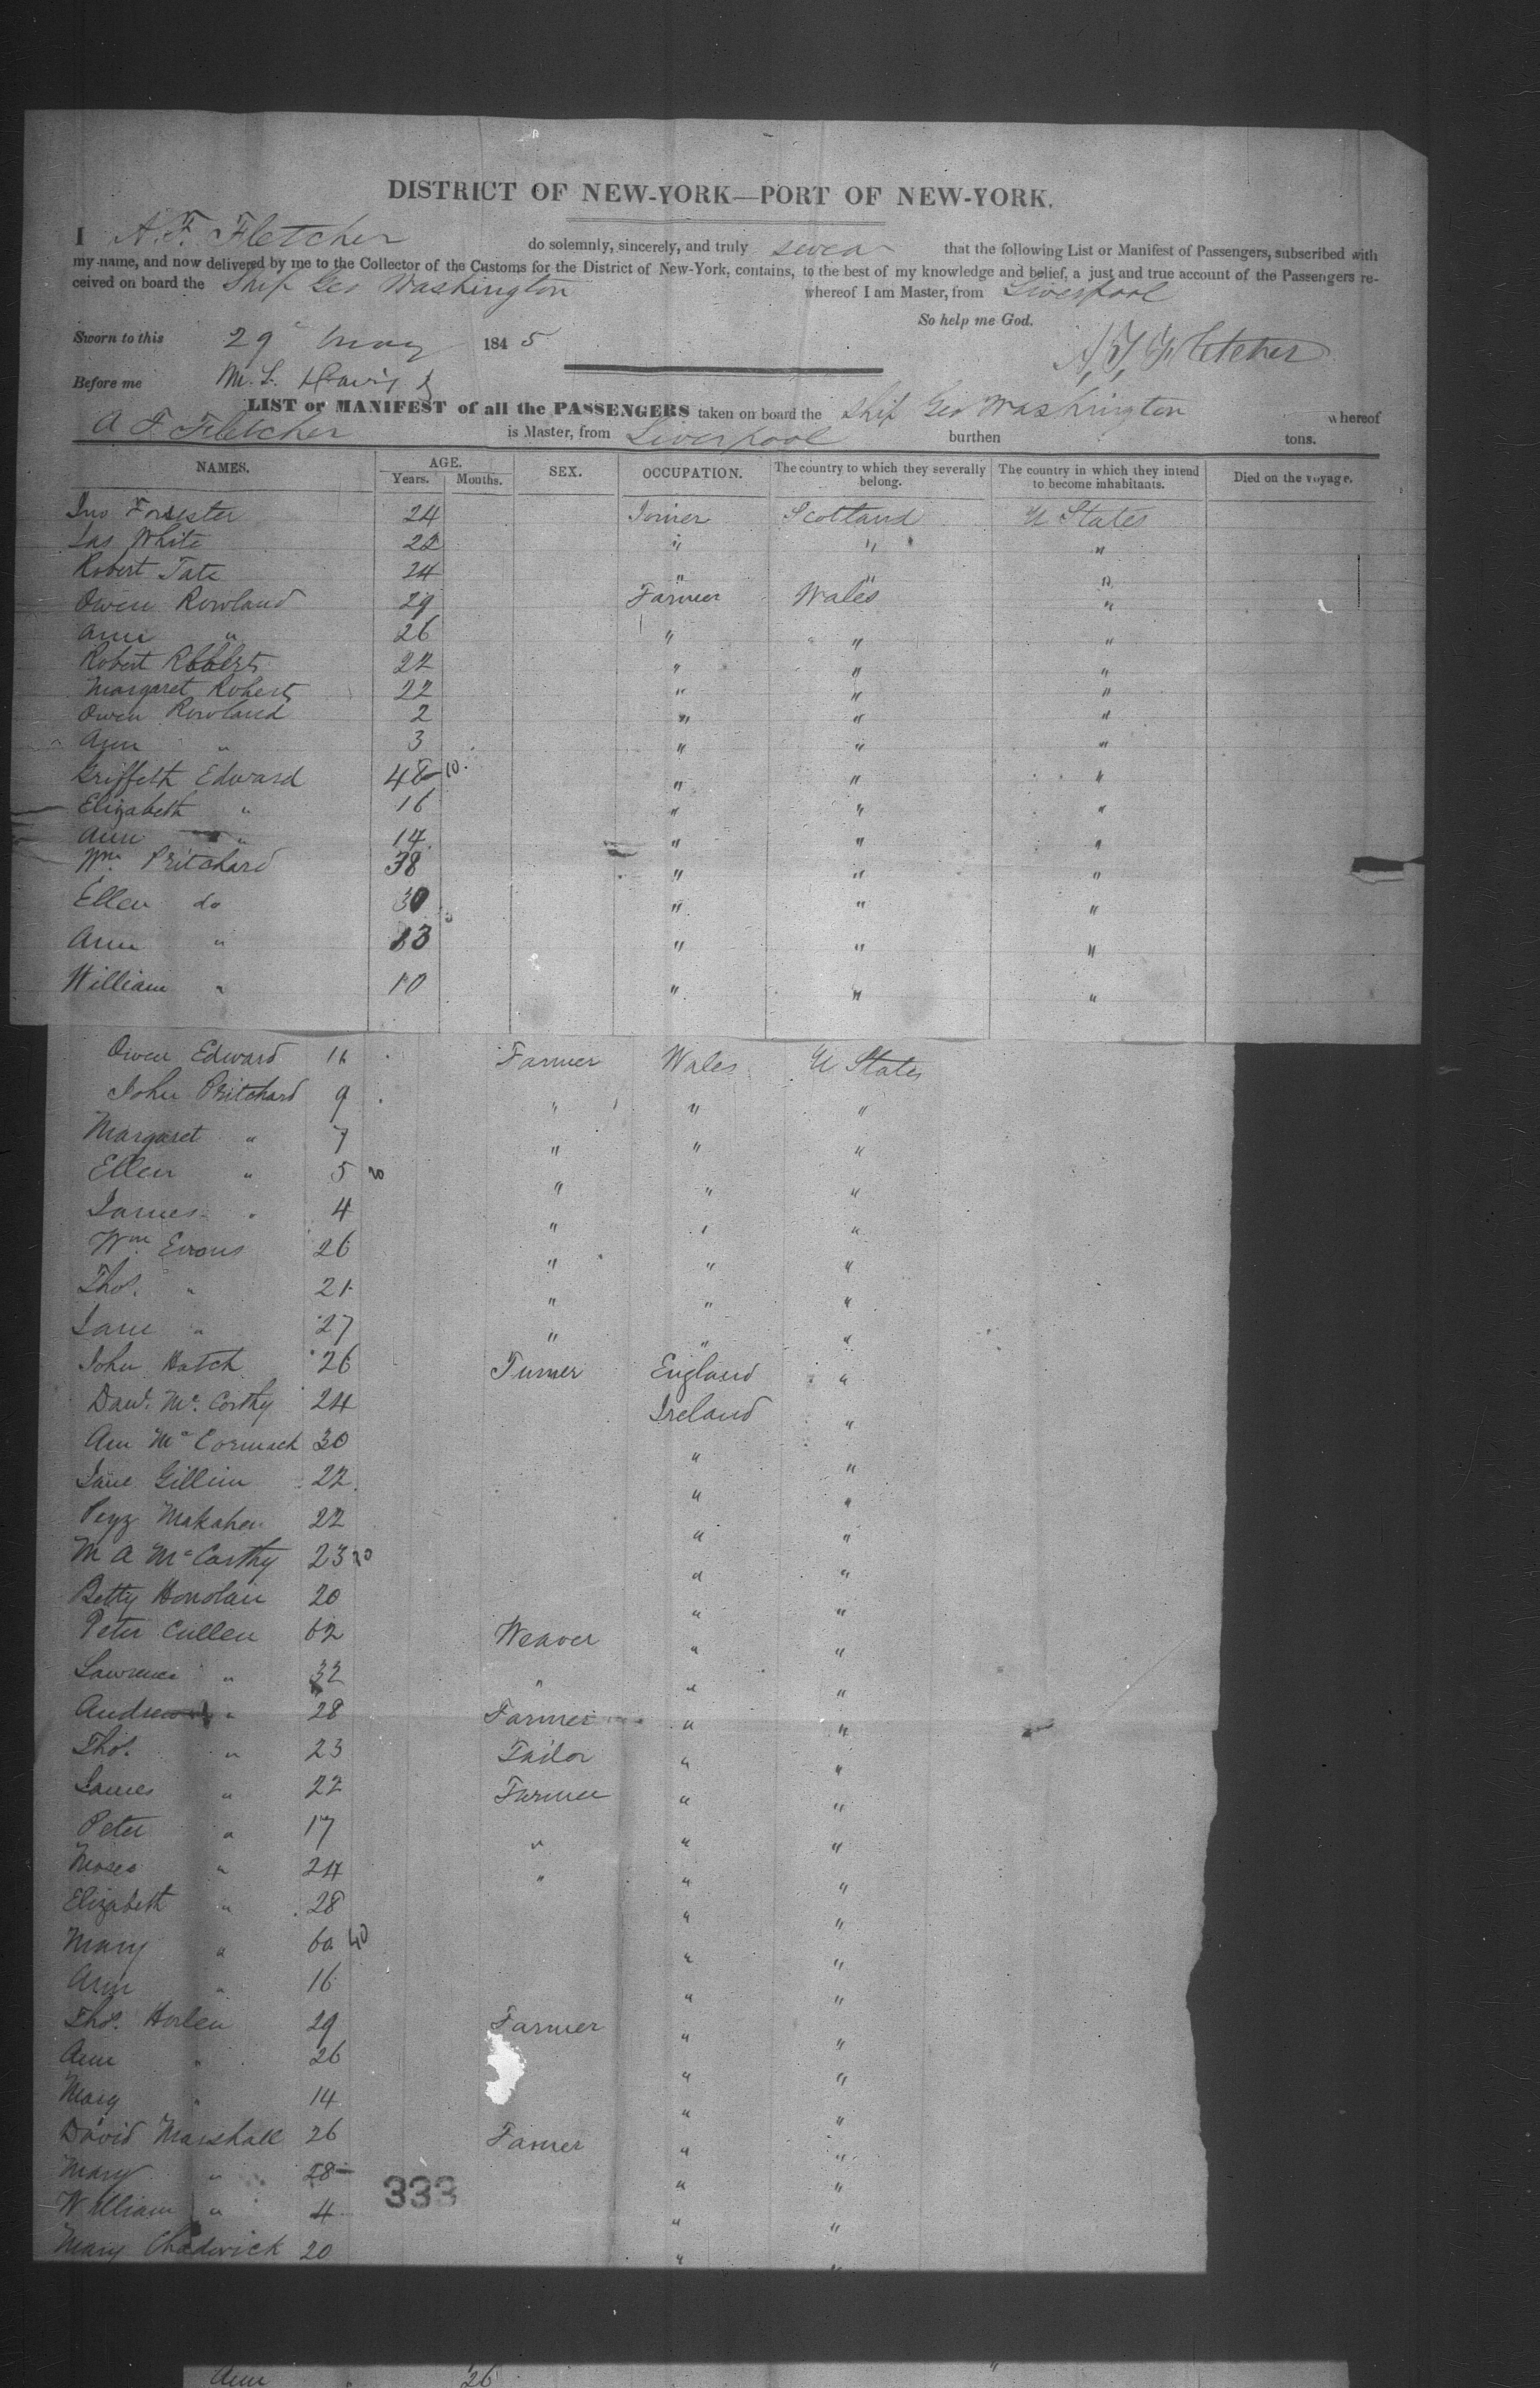 DISTRICT OF NEW-YORK—PORT OF NEW-YORK.
I A. F. Fletcher do solemnly, sincerely, and truly swear that the following List or Manifest of Passengers, subscribed with
my name, and now delivered by me to the Collector of the Customs for the District of New-York, contains, to the best of my knowledge and belief, a just and true account of the Passengers re-
ceived on board the Ship Geo Washington whereof I am Master, from Liverpool
So help me God.
Sworn to this 29 May 1845 A. F. Fletcher
Before me M. L. Davis
LIST or MANIFEST of all the PASSENGERS taken on board the Ship Geo Washington whereof
A F Fletcher is Master, from Liverpool burthen tons.
NAMES. AGE. Years. Months. SEX. OCCUPATION. The country to which they severally belong. The country in which they intend to become inhabitants. Died on the voyage.
Jno Forrester 24 Joiner Scotland U States
Jas White 22 " " "
Robert Tate 24 " " "
Owen Rowland 29 Farmer Wales "
Ann " 26 " " "
Robert Roberts 22 " " "
Margaret Roberts 22 " " "
Owen Rowland 2 " " "
Ann " 3 " " "
Griffith Edward 48 10 " " "
Elizabeth " 16 " " "
Ann " 14 " " "
Wm. Pritchard 38 " " "
Ellen do 30 " " "
Ann " 13 " " "
William " 10 " " "
Owen Edward Farmer Wales U States
John Pritchard 9 " " "
Margaret " 7 " " "
Ellen " 5 20 " " "
James " 4 " " "
Wm Evans 26 " " "
Thos. " 21 " " "
Jane " 27 " " "
John Hatch 26 Turner England "
Dav. Mc. Corthy 24 Ireland "
Ann Mc Cormack 30 " "
Jane Gillim 22 " "
Makahen 22 " "
M A McCarthy 23 30 " "
Betty 20 " "
Peter Cullen 62 Weaver " "
Lawrence " 32 " " "
Andrew " 28 Farmer " "
Thos. " 23 Tailor " "
James " 22 Farmer " "
Peter " 17 " " "
Moses " 24 " " "
Elizabeth " 28 " "
Mary " 60 40 " "
Ann " 16 " "
Thos. 29 Farmer " "
Ann " 26 " "
Mary " 14 " "
David Marshall 26 Farmer " "
Mary " 28 " "
William " 4 " "
333
Mary Chadwick 20 " "
Ann " 26 "